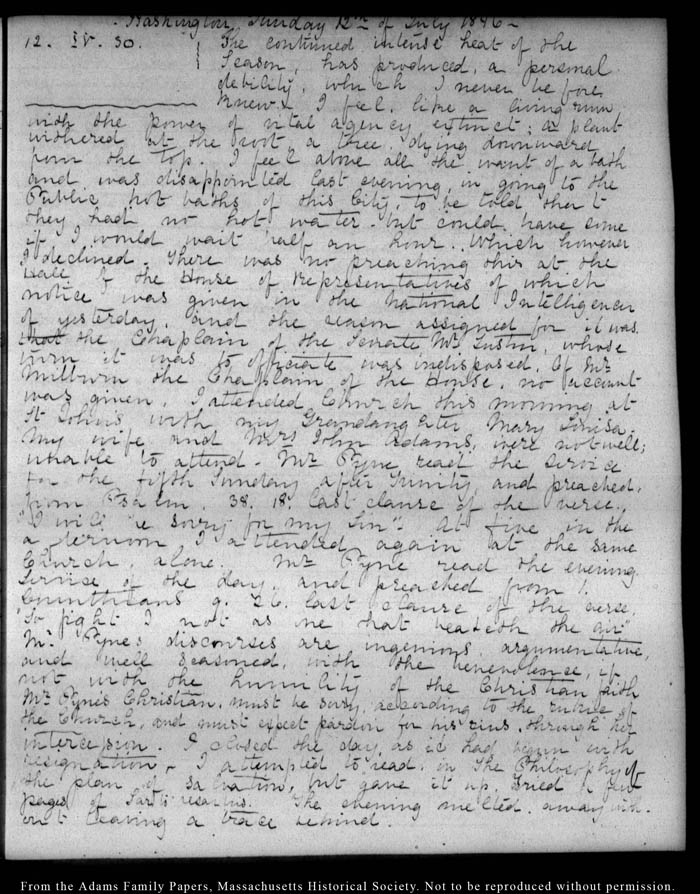 Washington, Sunday 12th of July 1846—
12. IV. 30. The continued intense heat of the
Season, has produced, a personal
debility, which I never before
knew. I feel, like a living ruin
with the power of vital agency extinct; a plant
withered at the root, a tree dying downward
from the top. I feel above all the want of a bath
and was disappointed last evening, in going to the
Public hot baths of this City, to be told that
they had no hot water. but could have some
if I would wait half an hour. Which however
I declined. There was no preaching this at the
Hall of the House of Representatives of which
notice was given in the National Intelligencer
of yesterday, and the reason assigned for it was
that the Chaplain of the Senate Mr. , whose
turn it was to officiate was indisposed. Of Mr
Milburn the Chaplain of the House, no account
was given. I attended Church this morning at
St. John's with my Grandaughter Mary Louisa.
My wife and Mrs John Adams, were not well;
unable to attend. Mr Pyne read the service
for the fifth Sunday after Trinity and preached,
from Psalm. 38. 18. last clause of the verse.,
"I will be sorry for my Sin". At five in the
afternoon I attended again at the same
Church, alone. Mr Pyne read the evening
service of the day and preached from 1.
Corinthians 9. 26. last clause of the verse,
"So fight I not as one that beateth the air"
Mr. Pyne's discourses are ingenious, argumentative,
and well seasoned, with the benevolence, if
not with the humility of the Christian faith
Mr Pyne's Christian, must be sorry, according to the rubric of
the Church, and must expect pardon for his sins, through her
intercession. I closed the day, as it had begun with
resignation— I attempted to read, in The Philosophy of
the plan of salvation, but gave it up, tried a few
pages of Sartor resartus. The evening melted away with-
out leaving a trace behind.
From the Adams Family Papers, Massachusetts Historical Society. Not to be reproduced without permission.